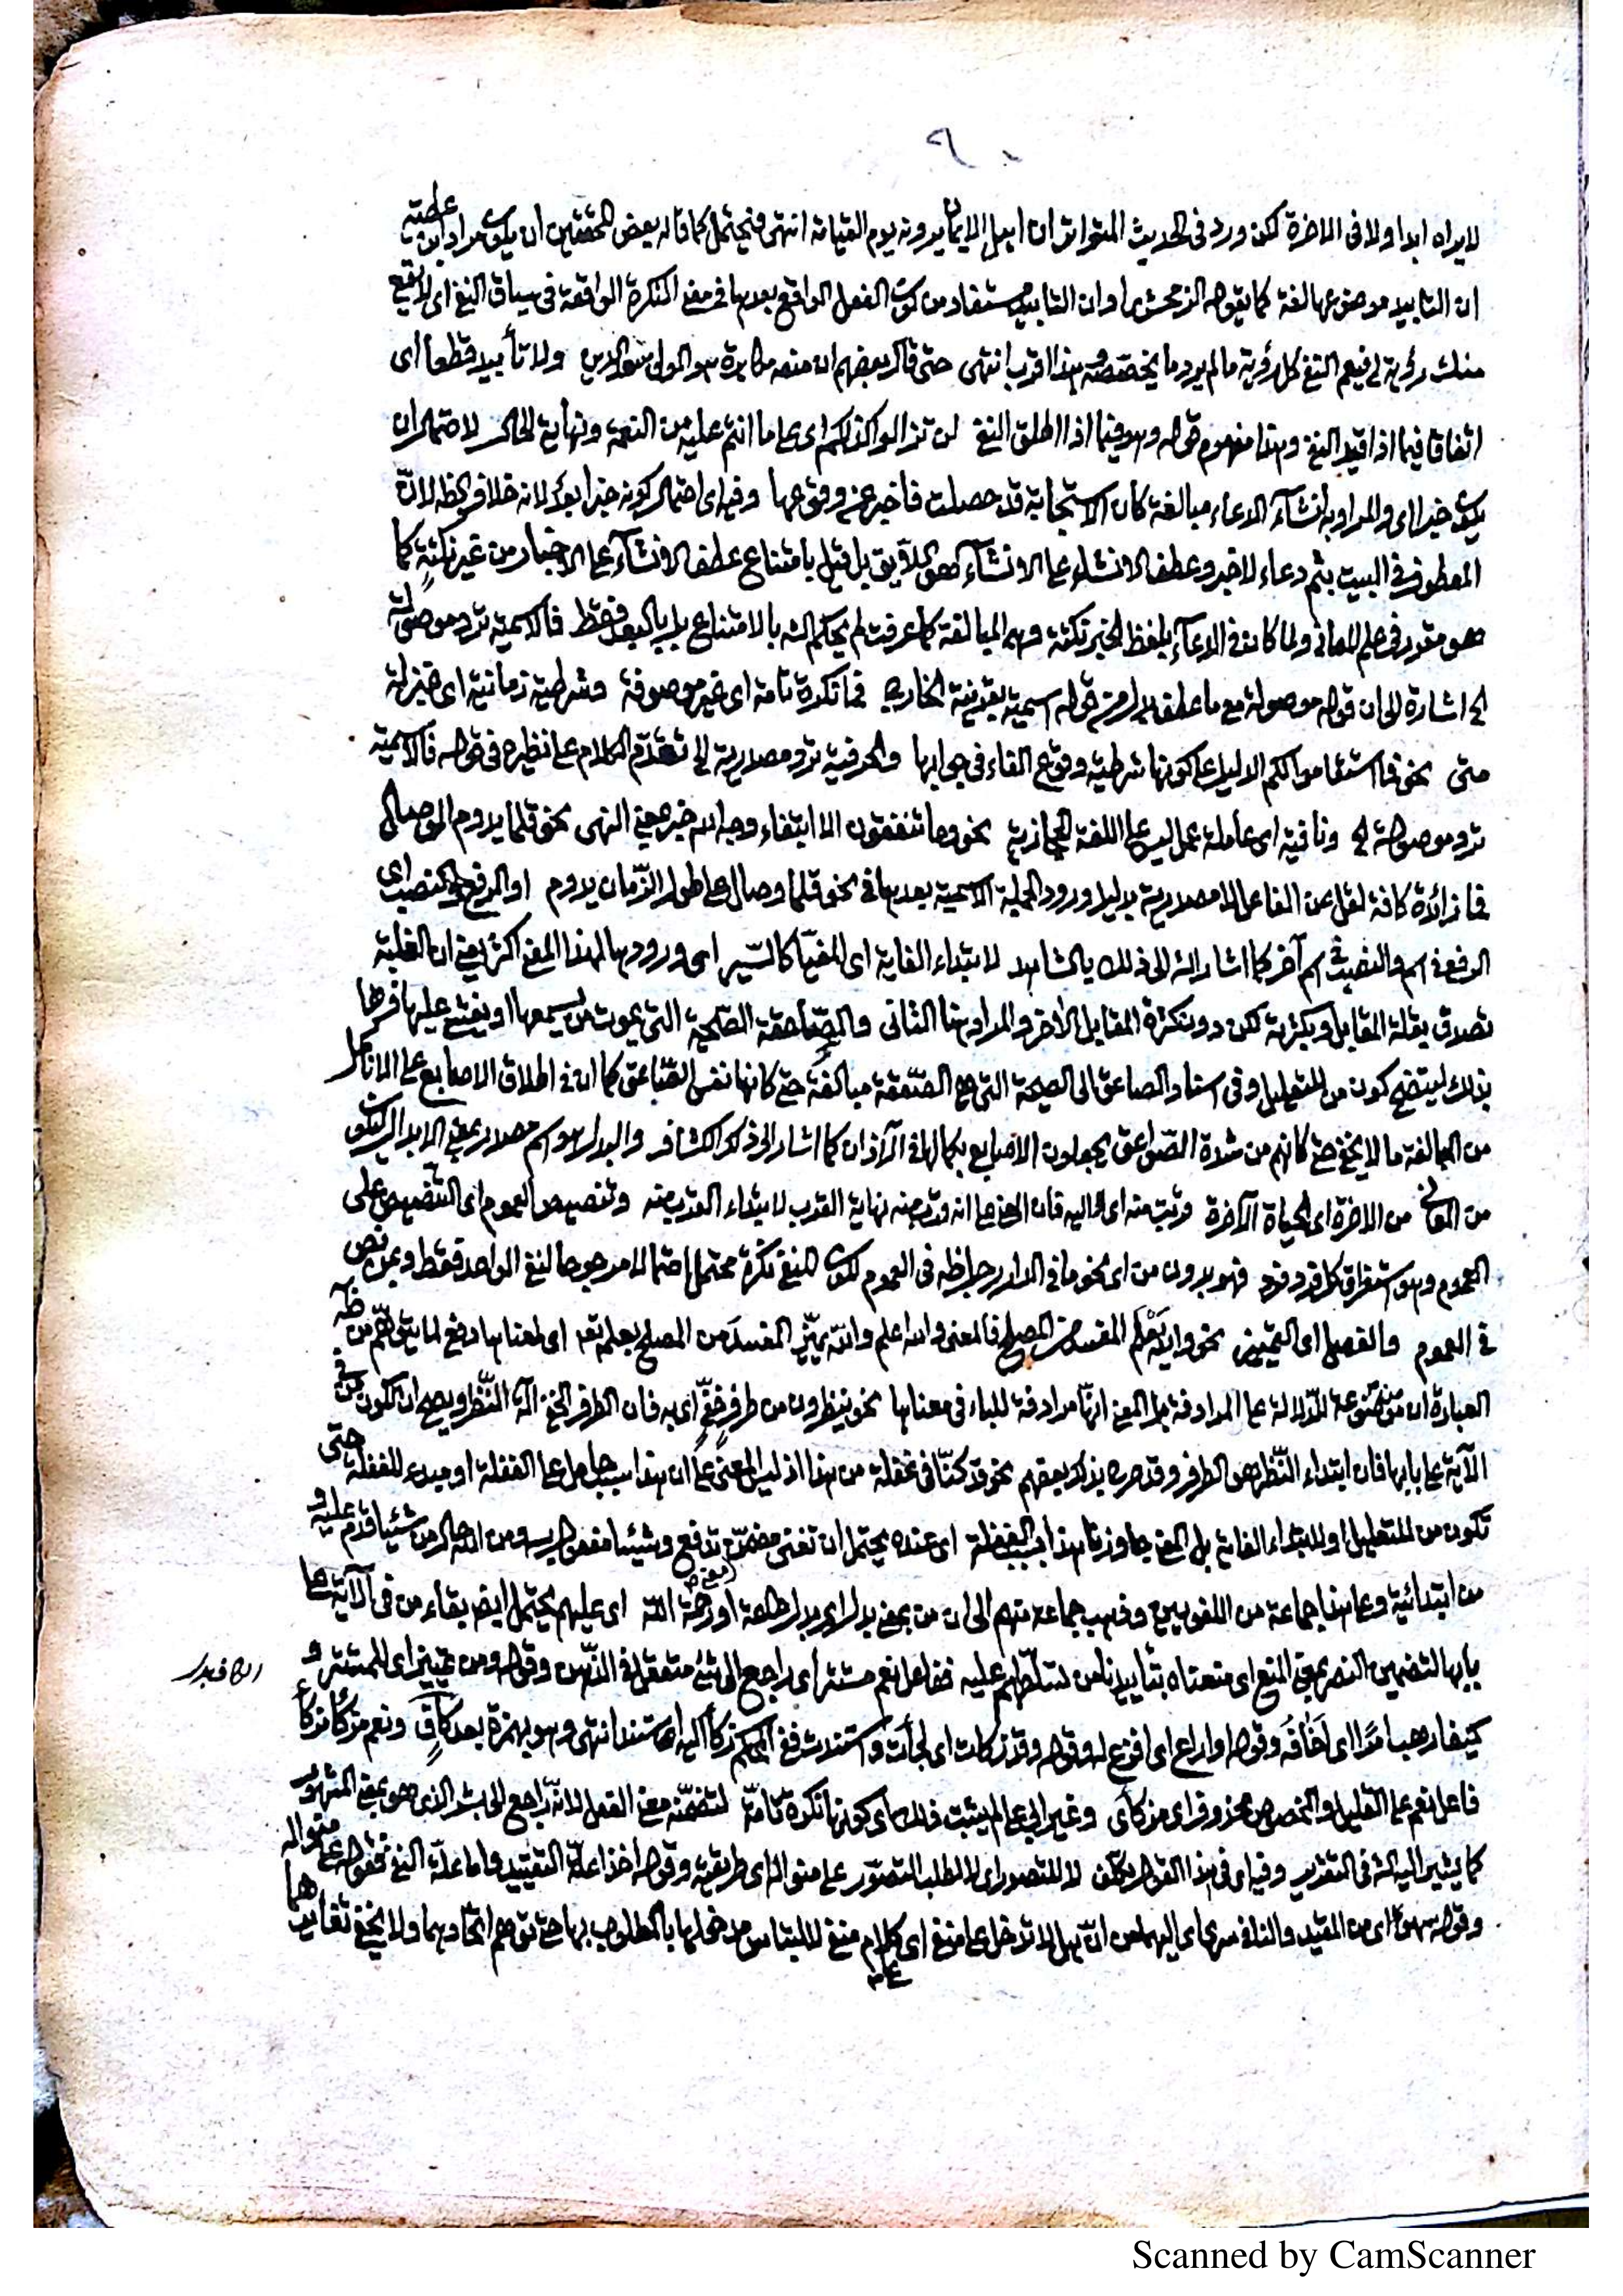 ٩٠
لا يراه ابدا ولا فى الاخرة لكن ورد فى الحديث المتواتر ان اهل الايمان يرونه يوم القيامة انتهى فيحتمل كما قاله بعض المحققين ان يكون مراد ابن عطية
ان التابيد موضوعها لغة كما يقوله الزمخشرى او ان التابيد مستفاد من كون الفعل الواقع بعدها فى معنى النكرة الواقعة فى سياق النفى اى لا يقع
منك رؤية لى فيعم النفى كل رؤية ما لم يرد ما يخصصه وهذا اقرب انتهى حتى قال بعضهم ان منعه مكابرة هو المولى سعد الدين ولا تأبيد قطعا اى
اتفاقا فيما اذا قيد النفى وهذا مفهوم قوله وهو فيما اذا اطلق النفى لن تزالوا كذلكم اى على ما انتم عليه من النعمة ونهاية الحال لاحتمال ان
يكون خبرا اى والمراد به انشاء الدعاء مبالغة كان الاستجابة قد حصلت فاخبر عن وقوعها وفيه اى احتمال كونه خبرا بعد لانه خلاف الظ لان
المعطوف فى البيت بثم دعاء لا خبر وعطف الانشاء على الانشاء هو اللايق بل قيل بامتناع عطف الانشاء على الاخبار من غير نكتة كما
هو مقرر فى علم المعانى ولما كان فى الدعاء بلفظ الخبر نكتة وهى المبالغة كما عرفت لم يحكم الش بالامتناع بل بالبعد فقط فالاسمية ترد موصولة
الخ اشارة الى ان قوله موصولة مع ما عطف بدل من قوله اسمية بقرينة الخارج فما نكرة تامة اى غير موصوفة وشرطية زمانية اى بمنزلة
متى نحو فما استقاموا لكم الدليل على كونها شرطية وقوع الفاء فى جوابها والحرفية ترد مصدرية الخ تقدم الكلام على نظيره فى قوله فالاسمية
ترد موصولة الخ ونافية اى عاملة عمل ليس على اللغة الحجازية نحو وما تنفقون الا ابتغاء وجه الله خبر بمعنى النهى نحو قلما يدوم الوصال
فما زائدة كافة لقل عن الفاعل لا مصدرية بدليل ورود الجملة الاسمية بعدها فى نحو قلما وصال على طول الزمان يدوم او الرفع والنصب اى
الرفع فى اسم والنصب فى اسم آخر كما اشار الش الى ذلك بالشاهد لابتداء الغاية اى المغيا كالسير اى ورودها لهذا المعنى اكثر يعنى ان الغلبة
تصدق بقلة المقابل وبكثرته لكن دون كثرة المقابل الاخر والمراد هنا الثانى والصاعقة الصيحة التى يموت من يسمعها او يغشى عليه فسرها
بذلك ليتضح كون من للتعليل وفى اسناد الصاعق الى الصيحة التى هى الصعقة مبالغة حتى كانها نفس الصاعق كما ان فى اطلاق الاصابع على الانامل
من المبالغة ما لا يخفى حتى كانهم من شدة الصواعق يجعلون الاصابع بكمالها فى الآذان كما اشار الى ذلك الكشاف والبدل هو اسم مصدر بمعنى الابدال
من المعانى من الاخرة اى الحياة الآخرة قربت منه اى اليه فان المعنى على انه قرب منه نهاية القرب لابتداء القرب منه وتنصيص العموم اى التنصيص على
العموم وهو استغراق كل فرد فرد فهو بدون من اى نحو ما فى الدار رجل ظ فى العموم لكون النفى نكرة محتمل احتمالا مرجوحا لنفى الواحد فقط وبمن نص
فى العموم والفصل اى التمييز نحو والله يعلم المفسد من المصلح فالمعنى والله اعلم والله يميز المفسد من المصلح بعلمه تعم اى لمعناها دفع لما يتوهم من ظ
العبارة ان من موضوعة للدلالة على المرادفة بل المعنى انها مرادفة للباء فى معناها نحو ينظرون من طرف خفى اى به فان الطرف الخفى آلة النظر ويصح ان يكون من فى
الآية على بابها فان ابتداء النظر هو الطرف وقد صرح بذلك بعضهم نحو قد كنا فى غفلة من هذا اذ ليس المعنى على ان هذا سبب حامل على الغفلة او مبدء للغفلة حتى
تكون من للتعليل او للابتداء الغاية بل المعنى جاوزنا هذا بسبب الغفلة اى عنده يحتمل ان تغنى مضمن تدفع وشيئا مفعول به ومن الله حال من شيئا قدم عليه و
من ابتدائية وعلى هذا جماعة من اللغويين وذهب جماعة منهم الى ان من بمعنى بدل اى بدل طاعة او رحمة الله اى عليهم يحتمل ايض بقاء من فى الآية على
بابها لتضمين النصر بمعنى المنع اى منعناه بتاييدنا من تسلطهم عليه ففاعل نعم مستتر اى راجع الى شئ متعقل فى الذهن وقوله ومن تمييز اى للمستتر و
كيف ارهب امرا اى اخافه وقوله اوارع اى افزع له وقوله وقد زكات اى لجأت واستندت ففى المحكم زكأ اليه استند انتهى وهو بهمزة بعد كاف ونعم مزكأ مزكأ
فاعل نعم على القليل والمخصوص محذوف اى مزكاى وغير ابى على لم يثبت ذلك اى كونها نكرة تامة لتضمنه معنى الفعل لانه راجع الى بشر الذى هو بمعنى المشهور
كما يشير اليه الش فى التقدير وفيه اى فى هذا القول تكلف لا للتصور اى لا لطلب التصور على منواله اى طريقته وقوله اخذا علة التقييد واما علة النفى فقوله على منواله
وقوله سهوا اى من المقيد والنافى سرى اى اليهما من ان هل لا تدخل على منفى اى كلام منفى للالتباس مدخولها بالمطلوب بها حتى توهم اتحادهما ولا يخفى تغايرهما
Scanned by CamScanner